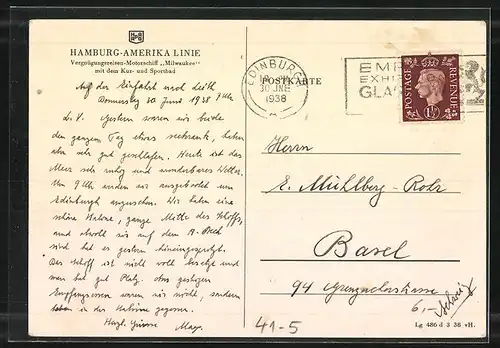 HAMBURG-AMERIKA LINIE
Vergnügungsreisen-Motorschiff „Milwaukee“
mit dem Kur- und Sportbad
Auf der Einfahrt nach Leith
Donnerstag 30 Juni 1938 9 Uhr
L. V. Gestern waren wir beide
den ganzen Tag etwas seekrank, haben
aber sehr gut geschlafen. Heute ist das
Meer sehr ruhig und wunderbares Wetter.
Um 9 Uhr werden wir ausgebootet um
Edinburgh anzusehen. Wir haben eine
schöne Kabine, ganze Mitte des Schiffs,
und obwohl wir auf dem A-Deck
sind hat es gestern hineingespritzt.
Das Schiff ist nicht voll besetzt und
man hat gut Platz. Am gestrigen
Empfangsessen waren wir nicht, sondern
haben in der Kabine gegessen.
Herzl. Grüsse Max.
POSTKARTE
EDINBURGH
30 JNE
1938
EMP
EXHI
GLAS
POSTAGE
REVENUE
1½D
Herrn
E. Mühlberg-Rohr
Basel
94 Grenzacherstrasse
Schweiz
6,-
41-5
Lg 486 d 3 38 vH.